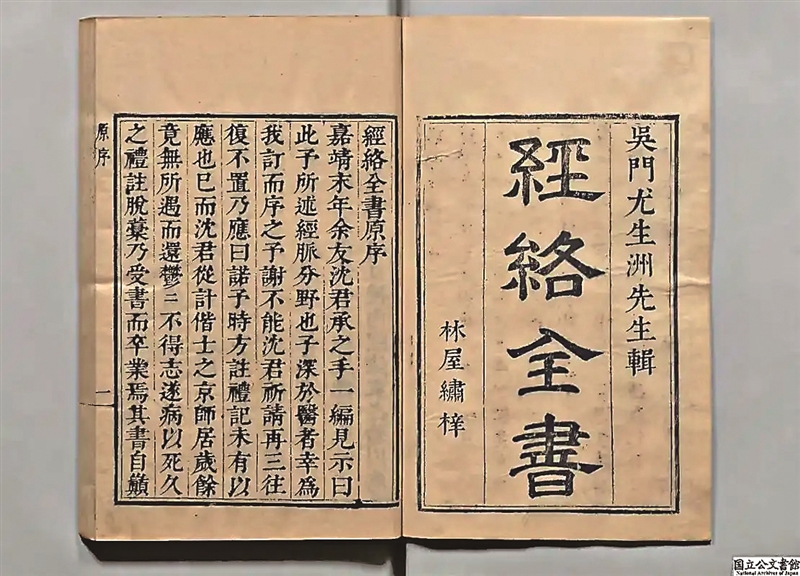 吳門尤生洲先生輯
經絡全書
林屋繡梓
經絡全書原序
嘉靖末年余友沈君承之手一編見示曰
此予所述經脈分野也子深於醫者幸為
我訂而序之予謝不能沈君祈請再三往
復不置乃應曰諾予時方註禮記未有以
應也已而沈君從計偕士之京師居歲餘
竟無所遇而還鬱〻不得志遂病以死久
之禮註脫藁乃受書而卒業焉其書自顛
原序
一
国立公文書館
National Archives of Japan